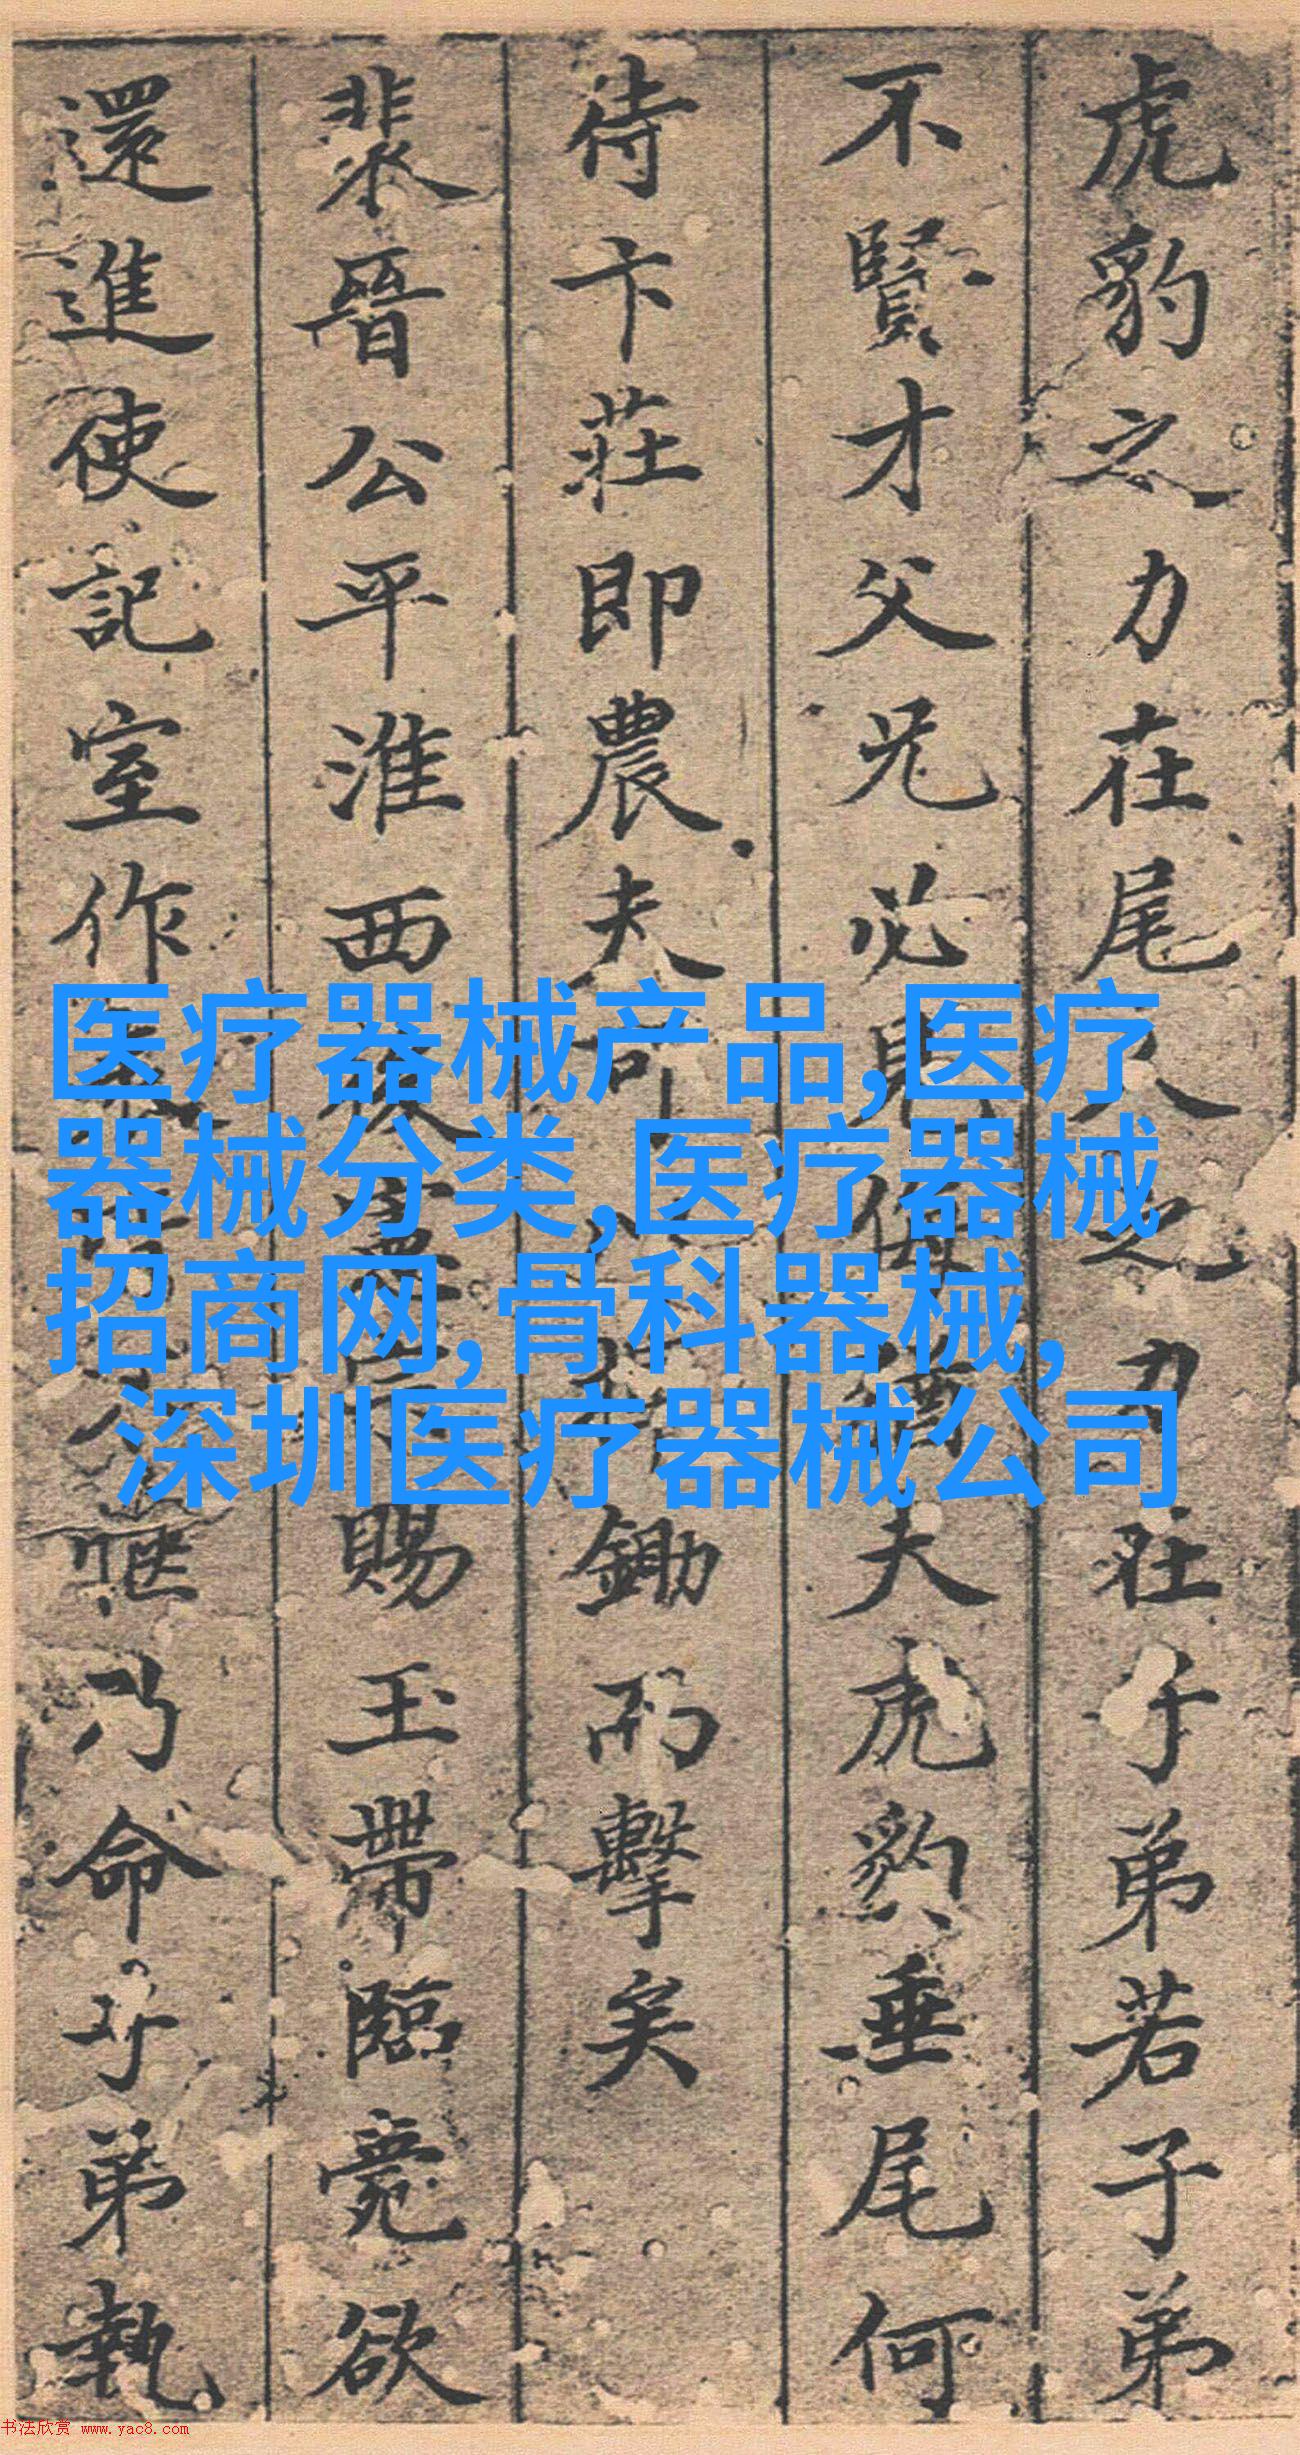 虎豹之力在尾人之力在子弟若子弟
不賢才父兄必見侮夫虎豹垂尾何
待卞莊即農夫可鋤而擊矣
裴晉公平淮西後憲宗賜玉帶臨薨欲
還進使記室作表皆不愜乃命子弟執
医疗器械产品,医疗
器械分类,医疗器械
招商网,骨科器械,
深圳医疗器械公司
书法欣赏 www.yac8.com